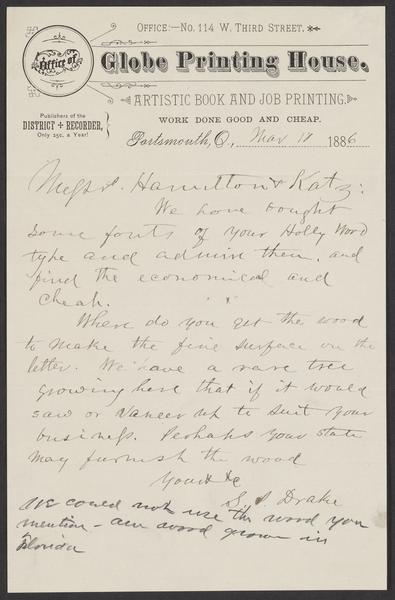 Office:—No. 114 W. Third Street.
Office of
Globe Printing House.
ARTISTIC BOOK AND JOB PRINTING.
Publishers of the
DISTRICT + RECORDER,
Only 25c. a Year!
WORK DONE GOOD AND CHEAP.
Portsmouth, O., Mar 18 1886
Messrs. Hamilton & Katz:
We have bought
some fonts of your Holly Wood
type and admire them, and
find the economical and
cheap.
Where do you get the wood
to make the fine surface on the
letter. We have a rare tree
growing here that if it would
saw or Vaneer up to suit your
business. Perhaps your state
may furnish the wood
Yours &c
S. P. Drake
We could not use the wood you
mention - our wood grown in
Florida